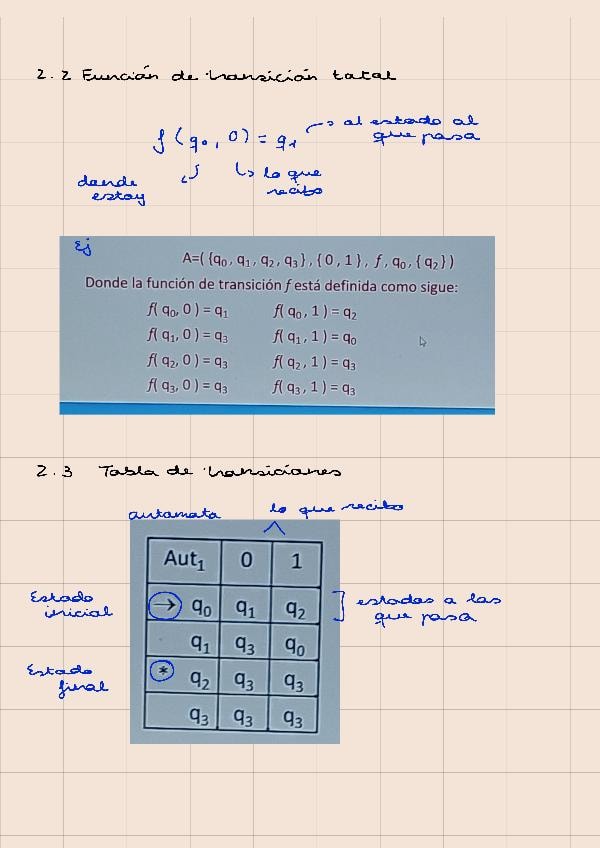 2.2 Función de transición total
f(q₀, 0) = q₁ → al estado al que pasa
donde estoy
lo que recibo
Ej
A=({q₀, q₁, q₂, q₃}, {0, 1}, f, q₀, {q₂})
Donde la función de transición f está definida como sigue:
f( q₀, 0 ) = q₁ f( q₀, 1 ) = q₂
f( q₁, 0 ) = q₃ f( q₁, 1 ) = q₀
f( q₂, 0 ) = q₃ f( q₂, 1 ) = q₃
f( q₃, 0 ) = q₃ f( q₃, 1 ) = q₃
2.3 Tabla de transiciones
automata lo que recibo
Aut₁ 0 1
Estado inicial → q₀ q₁ q₂ estados a los que pasa
q₁ q₃ q₀
Estado final * q₂ q₃ q₃
q₃ q₃ q₃